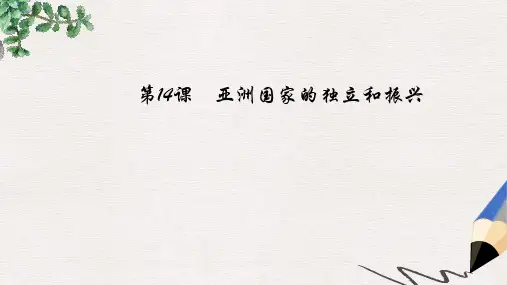 第14课 亚洲国家的独立和振兴